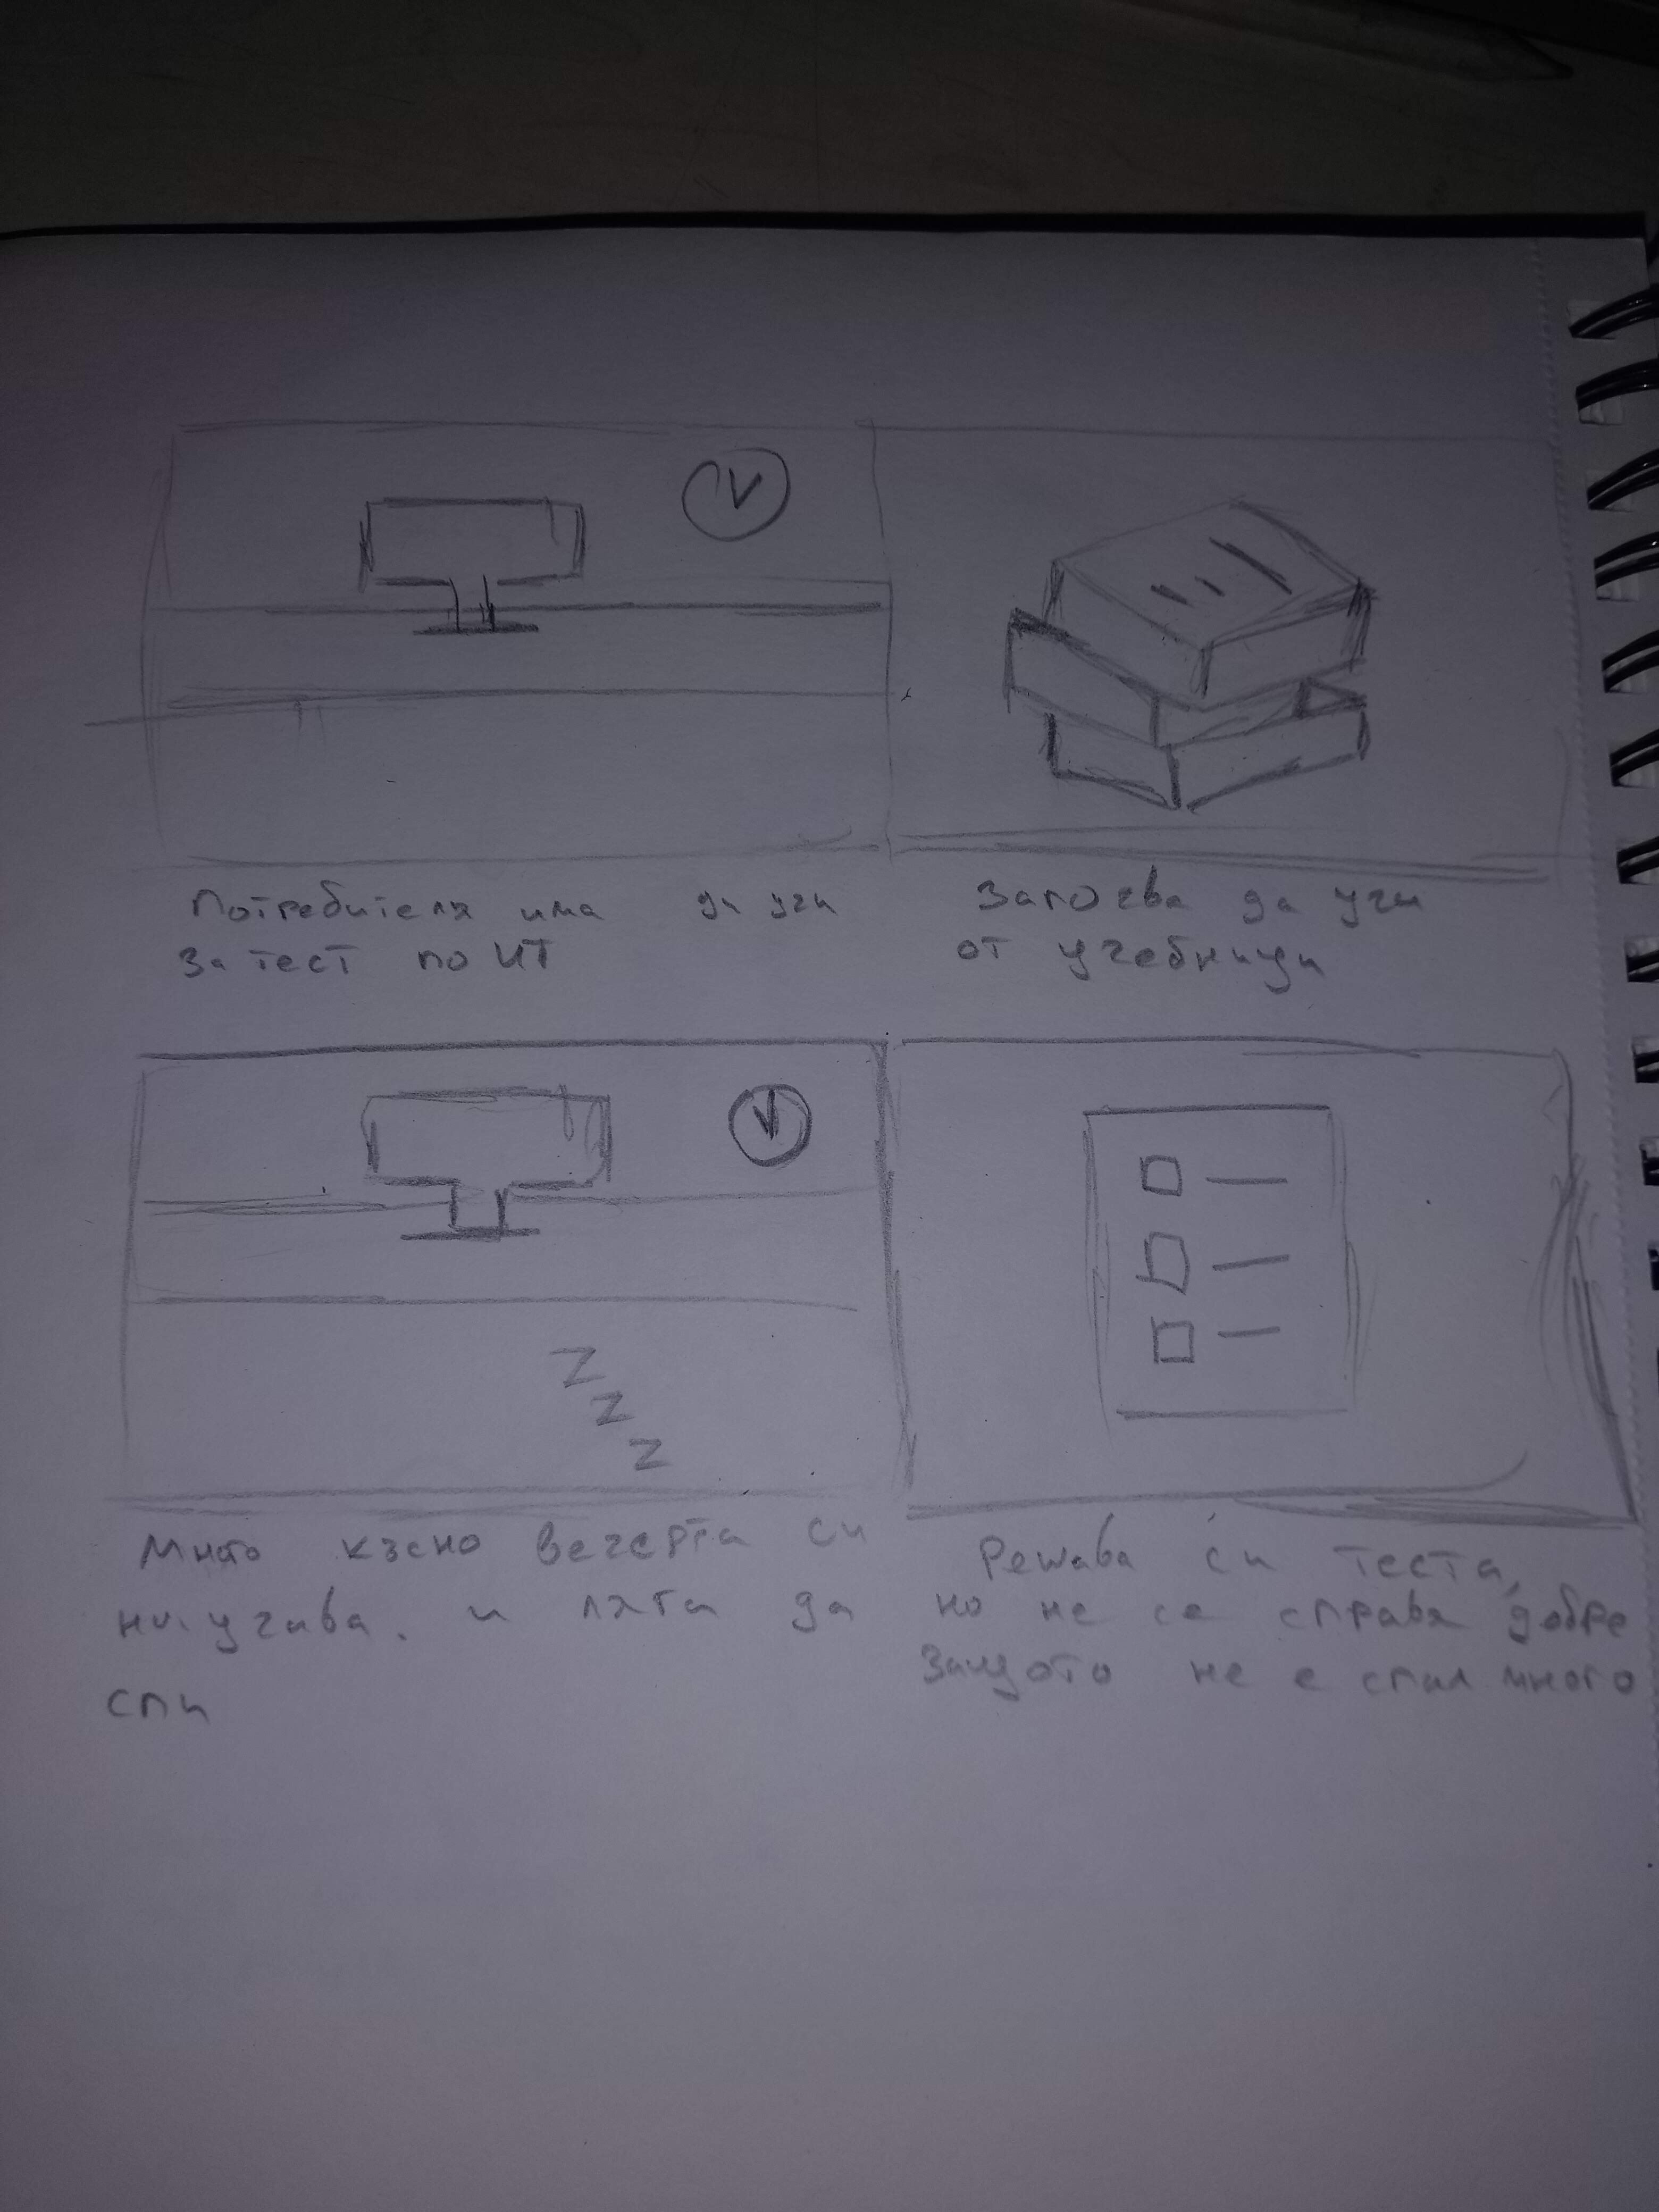 Потребителя има да учи
за тест по ИТ
Започва да учи
от учебници
Z
Z
Z
Много късно вечерта си
научава. и ляга да
спи
Решава си теста,
но не се справя добре
защото не е спал много